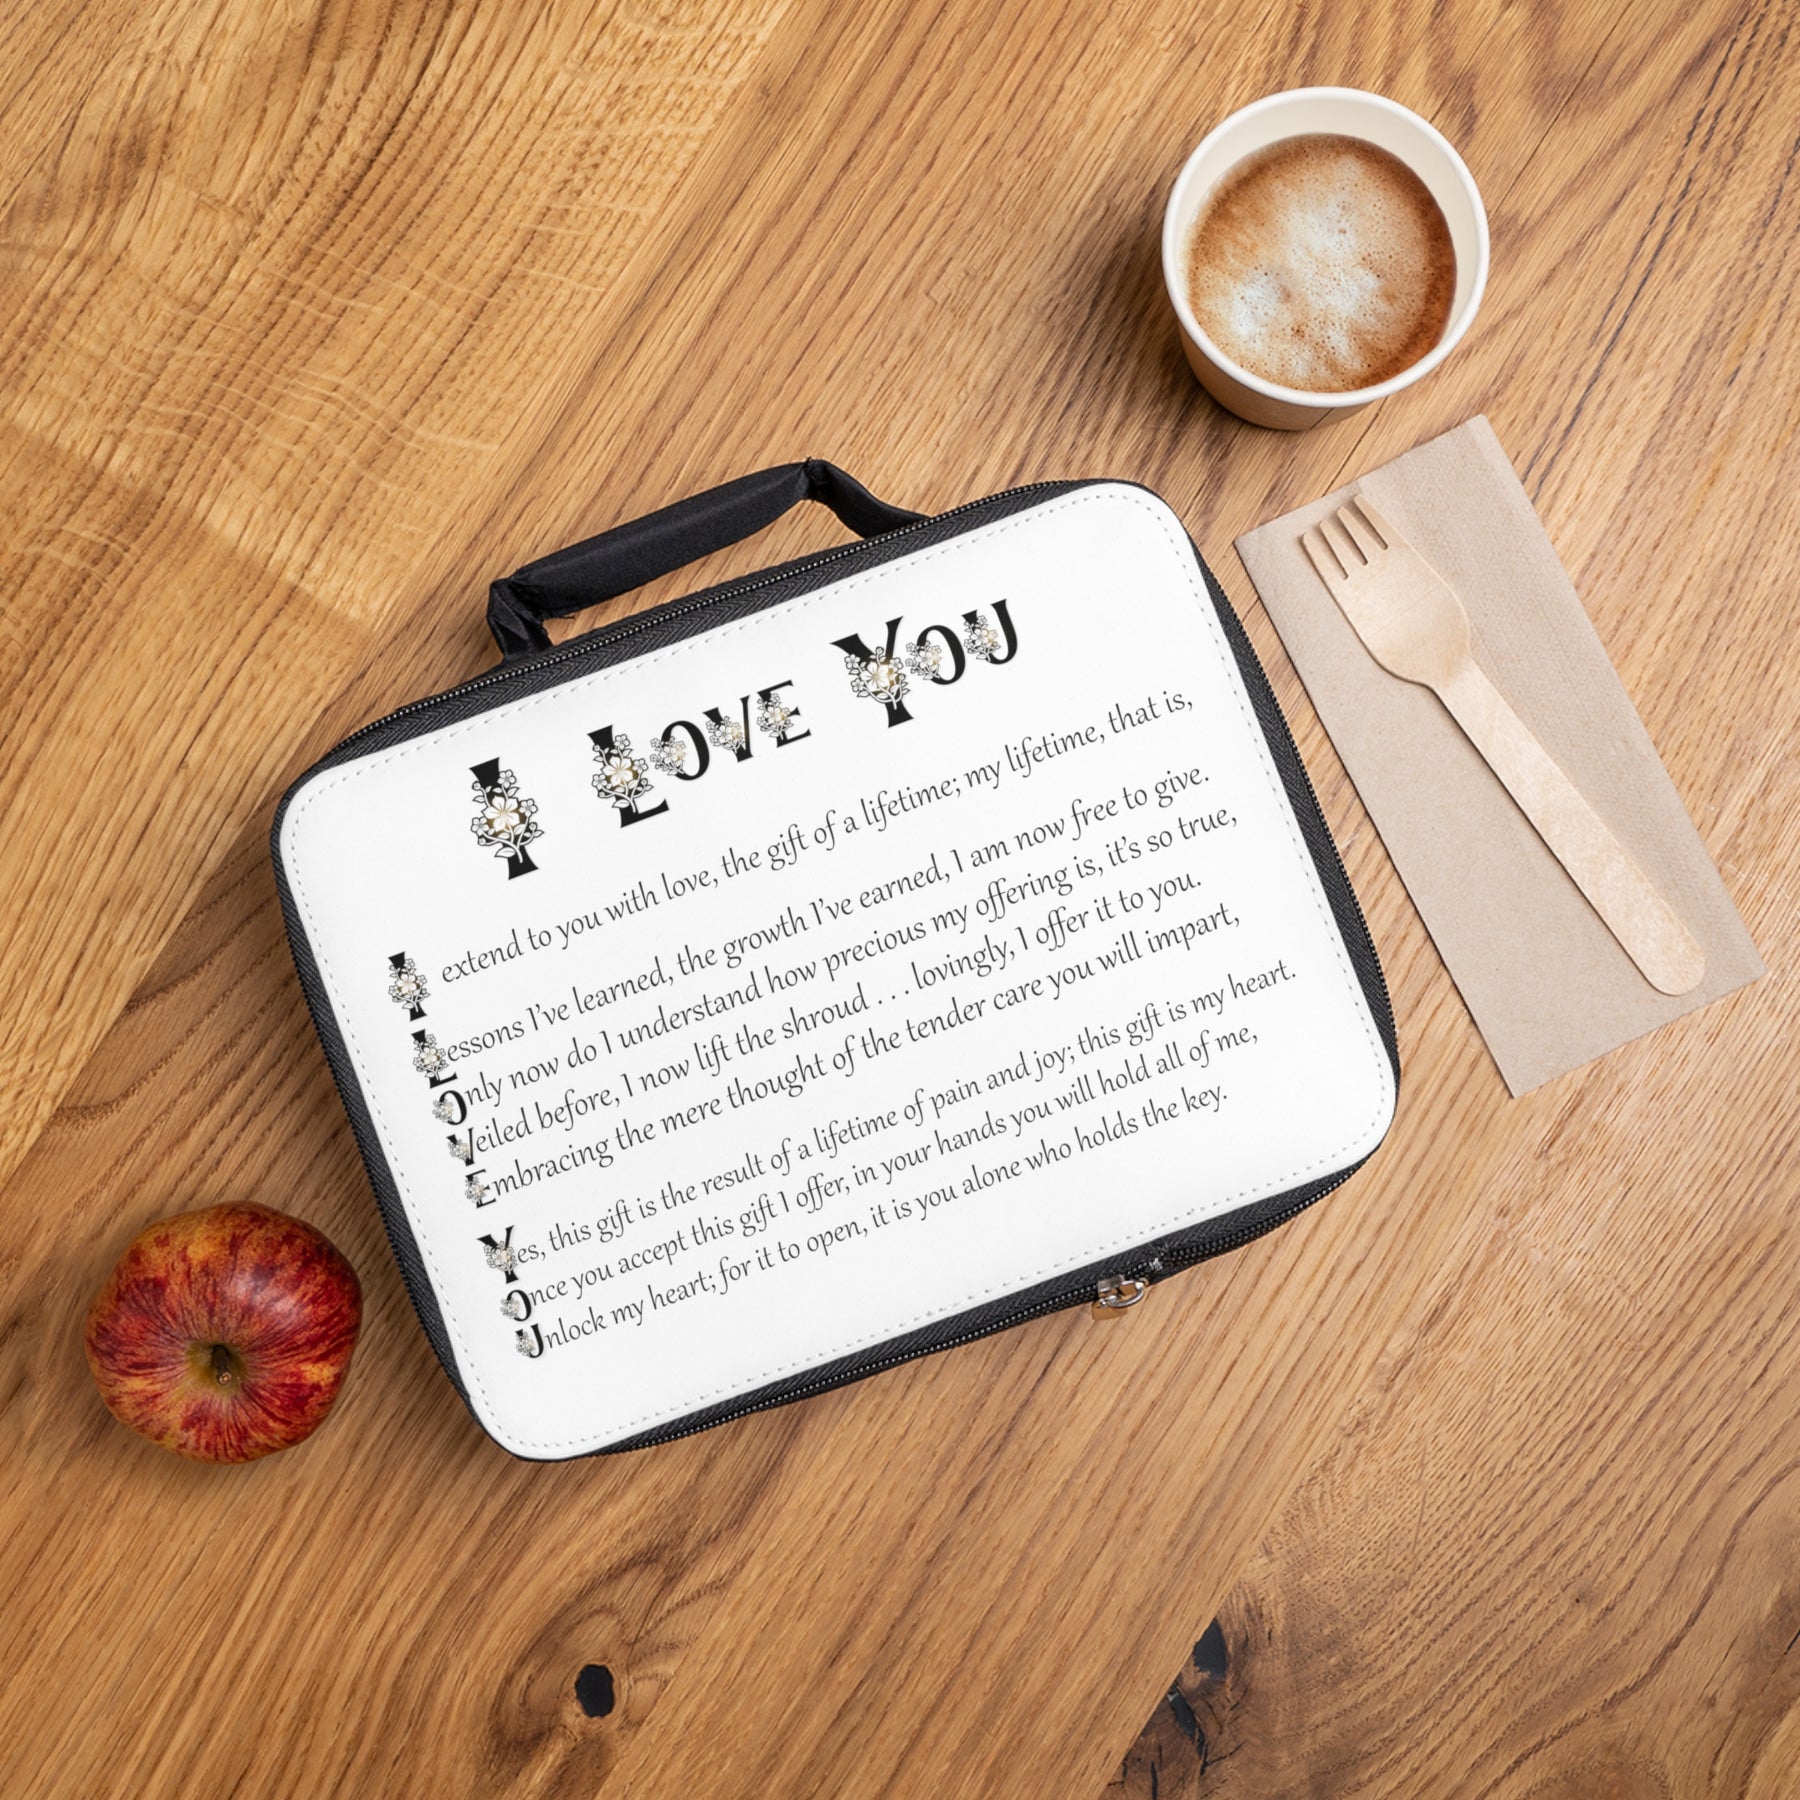 I Love You
I extend to you with love, the gift of a lifetime; my lifetime, that is,
Lessons I've learned, the growth I've earned, I am now free to give.
Only now do I understand how precious my offering is, it's so true,
Veiled before, I now lift the shroud . . . lovingly, I offer it to you.
Embracing the mere thought of the tender care you will impart,
Yes, this gift is the result of a lifetime of pain and joy; this gift is my heart.
Once you accept this gift I offer, in your hands you will hold all of me,
Unlock my heart; for it to open, it is you alone who holds the key.